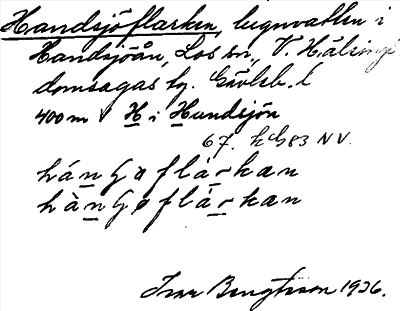 Handsjöflarken, lugnvatten i
Handsjöån, Los sn, V. Hälsingl
domsagas tg. Gävleb. l
400 m V H i Handsjön
67. h G83 NV.
flárkan
flàrkan
Ivar Bengtsson 1936.